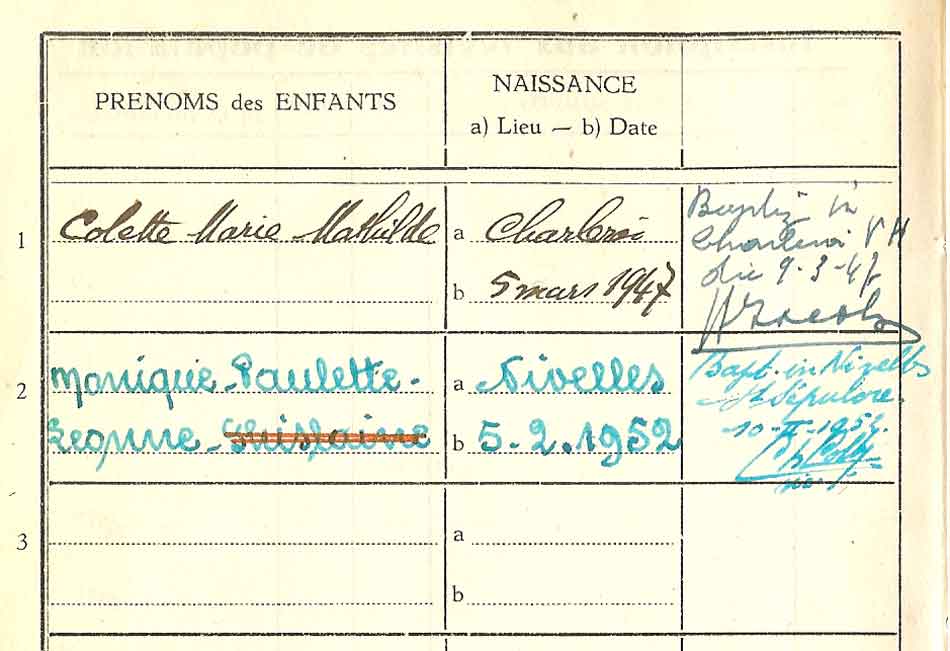 PRENOMS des ENFANTS
NAISSANCE
a) Lieu — b) Date
1
Colette Marie Mathilde
a Charleroi
b 5 mars 1947
Baptiz in
Charleroi V H
die 9-3-47
2
Monique-Paulette-
a Nivelles
Ghislaine
b 5-2.1952
Bapt. in Nivelles
St Sépulcre.
10-II-1952.
3
a
b